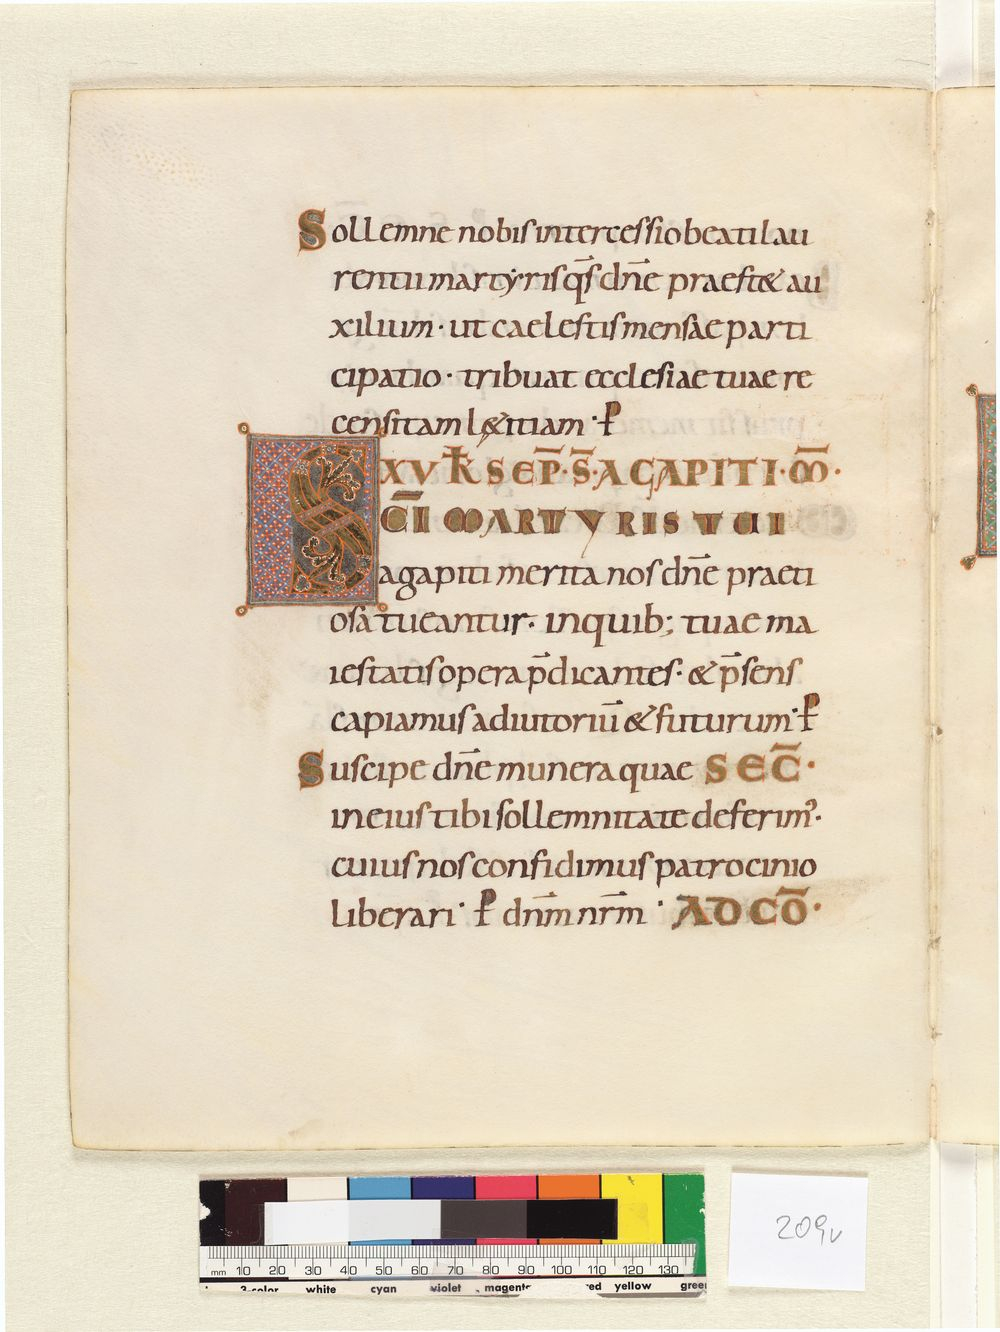 Sollemne nobis intercessio beati lau
rentii martyris q̄s dn̄e praest& au
xilium · ut caelestis mensae parti
cipatio · tribuat ecclesiae tuae re
censitam l&itiam · ꝑ
XV K̄ SEP̄ · S̄ · AGAPITI · M̄ ·
SC̄I MARTYRIS TUI
agapiti merita nos dn̄e praeti
osa tueantur · in quib; tuae ma
iestatis opera p̄dicantes · & p̄sens
capiamus adiutoriū & futurum · ꝑ
Suscipe dn̄e munera quae SEC̄ ·
in eius tibi sollemnitate deferim᾽ ·
cuius nos confidimus patrocinio
liberari · ꝑ dn̄m nr̄m · AD CŌ ·
209v
mm 10 20 30 40 50 60 70 80 90 100 110 120 130
3-color white cyan violet magent red yellow green